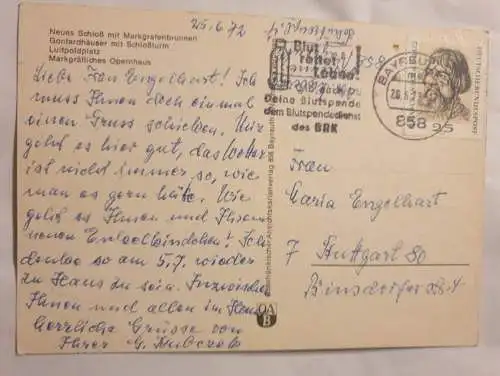 25.6.72
Neues Schloß mit Markgrafenbrunnen
Gontardhäuser mit Schloßturm
Luitpoldplatz
Markgräfliches Opernhaus
Liebe Frau Engelhart! Ich
muss Ihnen doch einmal
einen Gruss schicken. Mir
geht es hier gut, das Wetter
ist nicht immer so, wie
man es gern hätte. Wie
geht es Ihnen und Ihrem
neuen Enkelkindchen? Ich
denke so am 5.7. wieder
zu Haus zu sein. Inzwischen
Ihnen und allen im Haus
herzliche Grüsse von
Ihrer G.
Blut
rettet
Leben!
Deine Blutspende
dem Blutspendedienst
des BRK
BAYREUTH
858
95
DEUTSCHE BUNDESPOST
Frau
Maria Engelhart
7 Stuttgart 80
OA
B